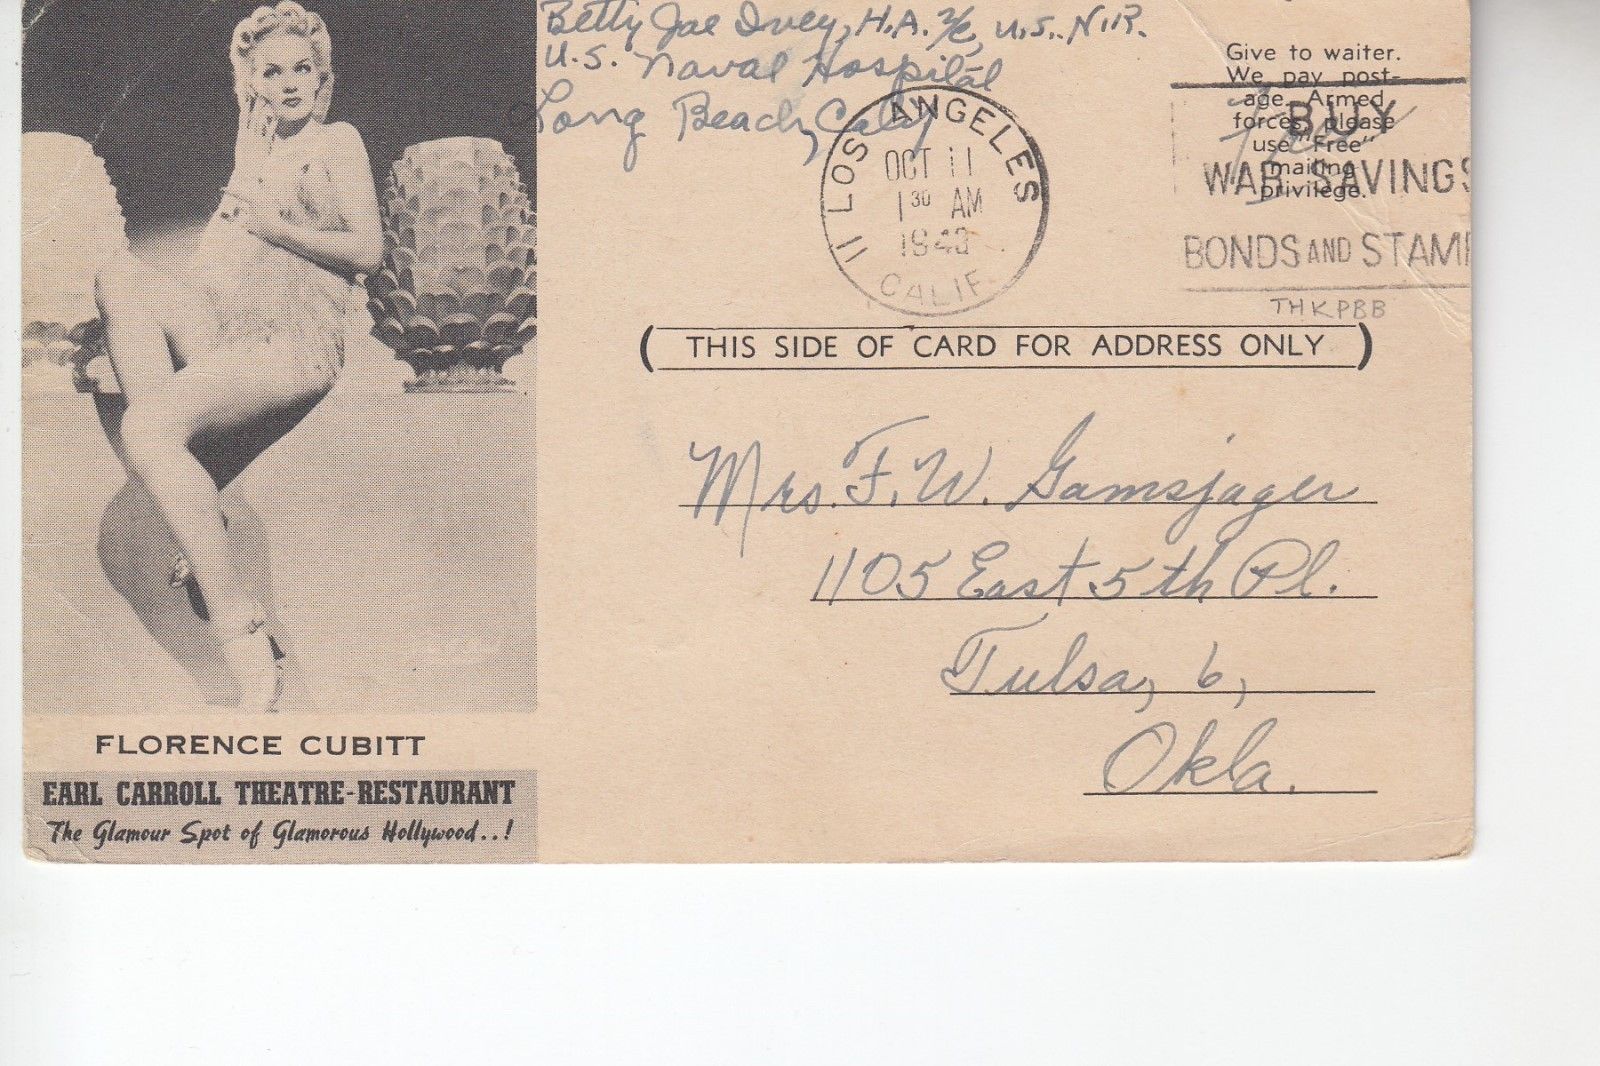 Betty Jae Ivey, H.A. 2/c, U.S.N.R.
U.S. Naval Hospital
Long Beach, Calif.
Give to waiter.
We pay post-
age. Armed
forces, please
use "Free"
mailing
privilege.
Free
11 LOS ANGELES
OCT 11
1 30 AM
1943
CALIF.
BUY
WAR SAVINGS
BONDS AND STAMP
THKPBB
(THIS SIDE OF CARD FOR ADDRESS ONLY)
Mrs. F. W. Gamsjager
1105 East 5th Pl.
Tulsa, 6,
Okla.
FLORENCE CUBITT
EARL CARROLL THEATRE-RESTAURANT
The Glamour Spot of Glamorous Hollywood..!